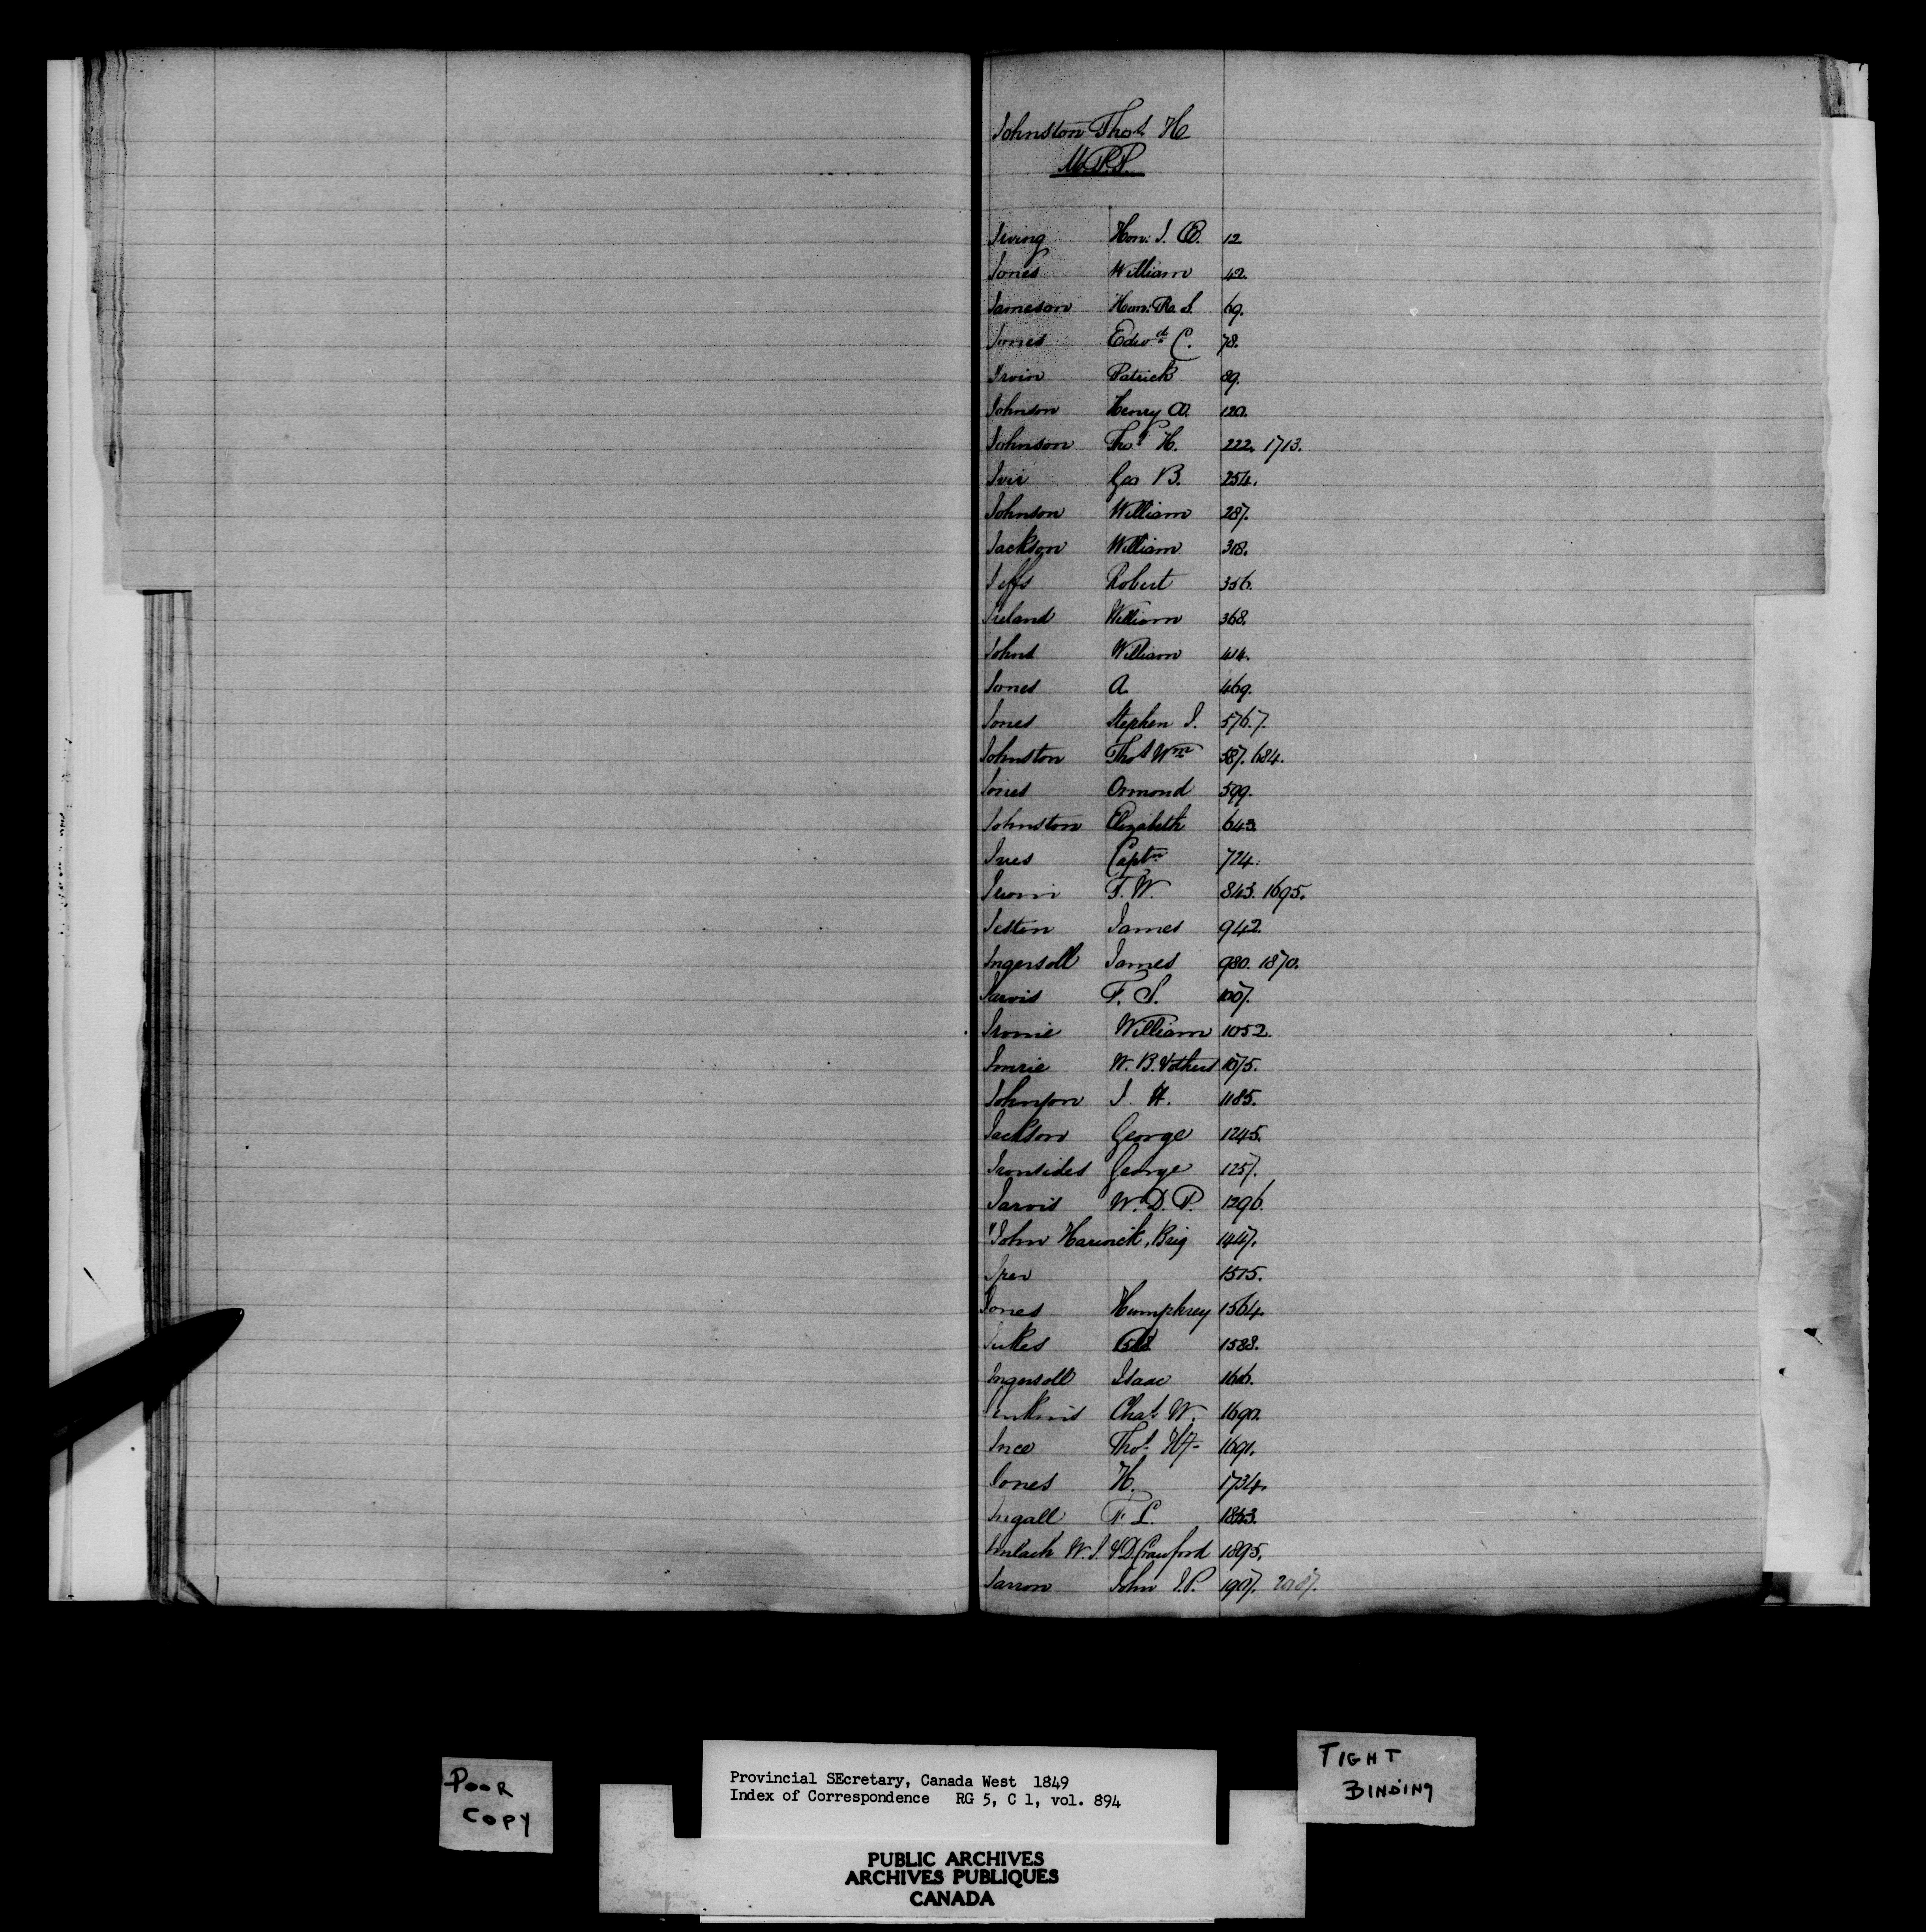 Johnston Thos H
M.P.P.
Irving Hon: J. Æ. 12
Jones William 42.
Jameson Hon: Ro. S. 69.
Jones Edwd C. 78.
Irvin Patrick 89.
Johnson Henry W. 120.
Johnson Thos H. 222. 1713.
Geo B. 254.
Johnson William 287.
Jackson William 318.
Jeffs Robert 356.
Ireland William 368.
Johns William 414.
Jones A. 469.
Jones Stephen J. 576.7.
Johnston Thos Wm 587. 684.
Jones Ormond 599.
Johnston Elizabeth 643.
Ives Captn 724.
F. W. 843. 1695.
James 942.
Ingersoll James 980. 1870.
Jarvis F. S. 1007.
William 1052.
Imrie W. B. & others 1075.
Johnson J. H. 1185.
Jackson George 1245.
Ironsides George 1257.
Jarvis W. D. P. 1296.
"John Harwick, Brig 1447.
1515.
Jones Humphrey 1564.
Jukes 1588.
Ingersoll Isaac 1616.
Jenkins Chas W. 1690.
Ince Thos 1691.
Jones H. 1734.
Ingall F. L. 1843.
Imlach W. J. & D. Crawford 1895.
Jarron John J.P. 1907. 2087.
POOR
COPY
TIGHT
BINDING
Provincial SEcretary, Canada West 1849
Index of Correspondence RG 5, C 1, vol. 894
PUBLIC ARCHIVES
ARCHIVES PUBLIQUES
CANADA